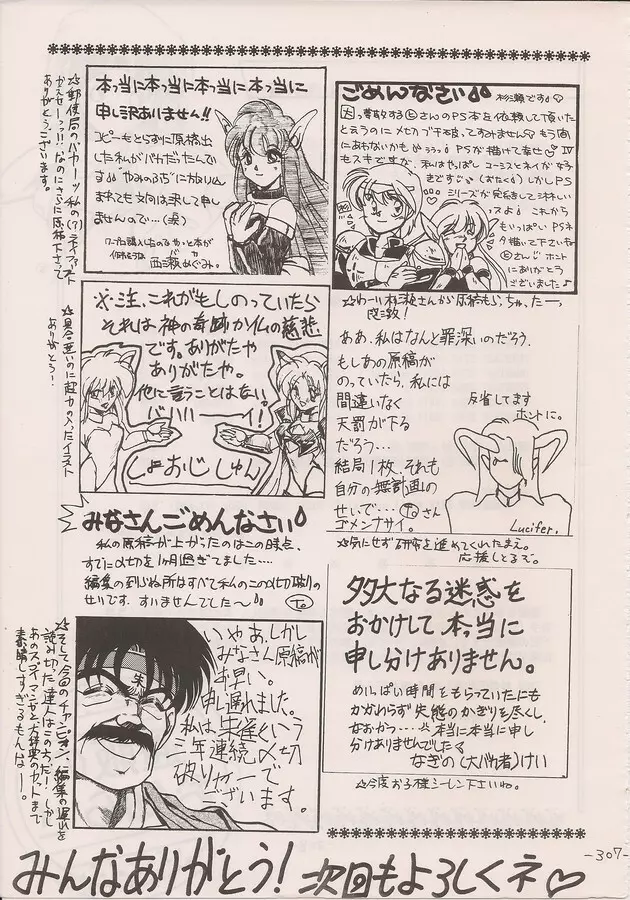 ごめんなさい
杉瀬です♡
犬っ曹段する㋪さんのPS本を依頼して頂いた
と言うのに メセカブチ本攻ってすみません♡ もう間に
PSが描けて幸せ♡ Ⅳ
もスキですが、私はやっぱし ユーシスとネイが好
きです♡ (おたく) しかしPS
シリーズが完結をして淋しい
これから
もいっぱい PSネ
タ描いて下さいね
㋪さん ホント
にありがとう
ございました♪
☆わーい 杉瀬さんから原稿もらっちゃったーっ
感激!
本っ当に本っ当に本っ当に本っ当に
申し訳ありません!!
コピーもとらずに原稿出
した私がバカだったんで
す 「やみのふち」に放りこ
まれても文句は決して申し
ませんので…(涙)
西瀬めぐみ.
☆郵便局のバカーッ 私の(?)ラ
かえせーっ!! なのにさらに原稿下さって
ありがとうございます。
※・注、これがもしのっていたら
それは神の奇跡か仏の慈悲
です。ありがたや
ありがたや。
他に言うことはない。
バハハーイ!
しょおじ しゅん
☆具合悪いのに超力の入ったイラスト
ありがとう!
ああ、私はなんと罪深いのだろう.
もしあの原稿が
のっていたら、私には
間違いなく
天罰が下る
だろう…
結局1枚、それも
自分の無計画の
せいで… ㋣さん
ゴメンナサイ。
反省してます
ホントに。
Lucifer.
☆気にせず研究を進めてくれたまえ。
応援しとるぞ。
みなさんごめんなさい
私の原稿が上がったのはこの時点.
すでに〆切を1ヶ月過ぎてました……
編集の到らぬ所はすべて私のこの〆切破りの
せいです. すいませんでした〜
多大なる迷惑を
おかけして 本当に
申し分けありません。
めいっぱい時間をもらっていたにも
かかわらず 失態のかぎりを尽くし、
なおかつ… 本当に本当に申し
分けありませんでした
なぎの(大バカ者)けい
☆今度お子様シーレン下さいね。
いやあ、しかし
みなさん原稿が
早い。
申し遅れました。
私は朱雀という
三年連続〆切
破りヤローで
ございます。
朱
☆そして今回のチャンピオン、編集の遅れを
読み切った達人はこの方だ! しかし
あのスゴイマンガと大辞典のカットまで
素晴しすぎるもんなー。
みんなありがとう! 次回もよろしくネ♡
-307-